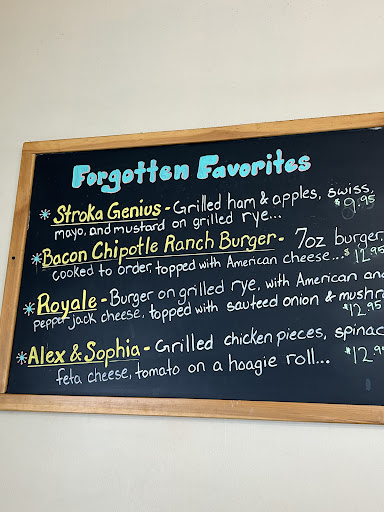 Forgotten Favorites
* Stroka Genius - Grilled ham & apples, swiss,
mayo, and mustard on grilled rye... $9.95
* Bacon Chipotle Ranch Burger - 7oz burger
cooked to order, topped with American cheese... $12.95
* Royale - Burger on grilled rye, with American and
pepper jack cheese, topped with sauteed onion & mushr
$12.95
* Alex & Sophia - Grilled chicken pieces, spinac
feta cheese, tomato on a hoagie roll... $12.95